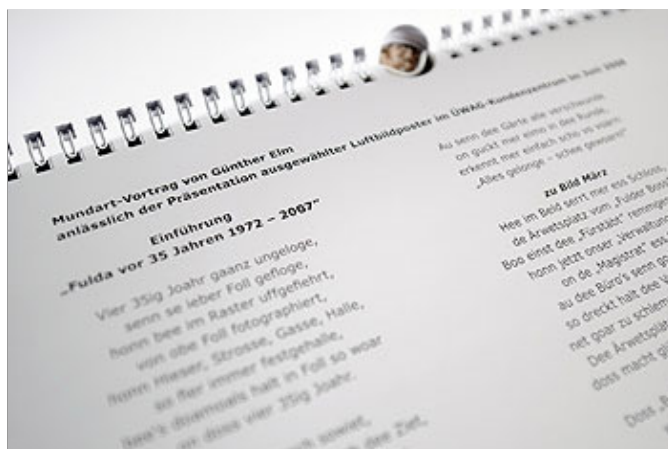 Mundart-Vortrag von Günther Elm
anlässlich der Präsentation ausgewählter Luftbildposter im ÜWAG-Kundenzentrum im Juni 2008
Einführung
„Fulda vor 35 Jahren 1972 – 2007"
Vier 35ig Joahr gaanz ungeloge,
senn se leber Foll gefloge,
honn bee im Raster uffgeflehrt,
von obe Foll fotographiert,
honn Hieser, Strosse, Gasse, Halle,
so fler immer festgehalle,
damols halt in Foll so woar
vier 35ig Joahr.
Au senn dee Gärte alle verschwunde,
on guckt mer eimo in dee Runde,
erkennt mer einfach schlo vo vuarn:
„Alles gelonge – schee geworn!"
zu Bild März
Hee im Beld serrt mer ess Schloss,
de Arwetsplatz vom „Fulder Boss",
Boo einst dee „Fürstäbt"
honn jetzt onser „Verwaltung
on de „Magistrat"
au dee Büro's senn
so dreckt halt dee
net goar zu
Dee Arwetsplät
doss macht
Doss